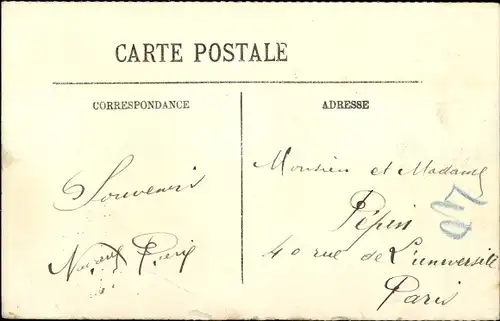 CARTE POSTALE
CORRESPONDANCE
ADRESSE
Souvenirs
Monsieur et Madame
Pépin
40 rue de L'université
Paris